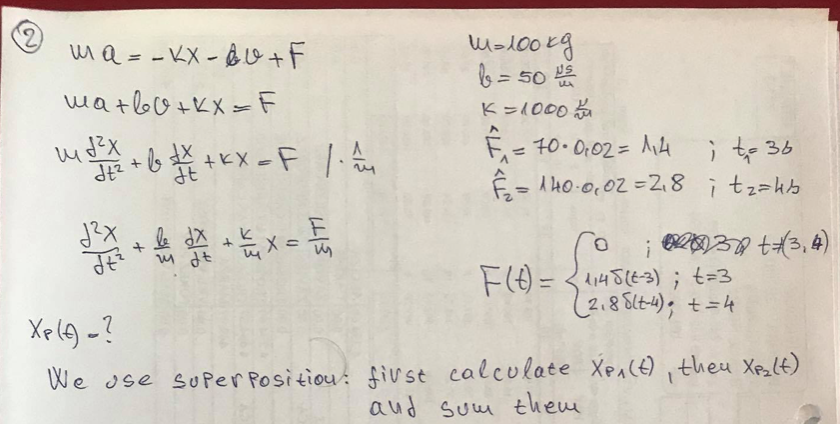 2
ma = -kx - bv + F
ma + bv + kx = F
m d²x/dt² + b dx/dt + kx = F / · 1/m
d²x/dt² + b/m dx/dt + k/m x = F/m
m = 100 kg
b = 50 Ns/m
k = 1000 N/m
F̂₁ = 70 · 0,02 = 1,4 ; t₁ = 3s
F̂₂ = 140 · 0,02 = 2,8 ; t₂ = 4s
F(t) = { 0 ; t≠(3, 4)
1,4δ(t-3) ; t = 3
2,8δ(t-4) ; t = 4
xp(t) - ?
We use superposition: first calculate xp₁(t), then xp₂(t)
and sum them